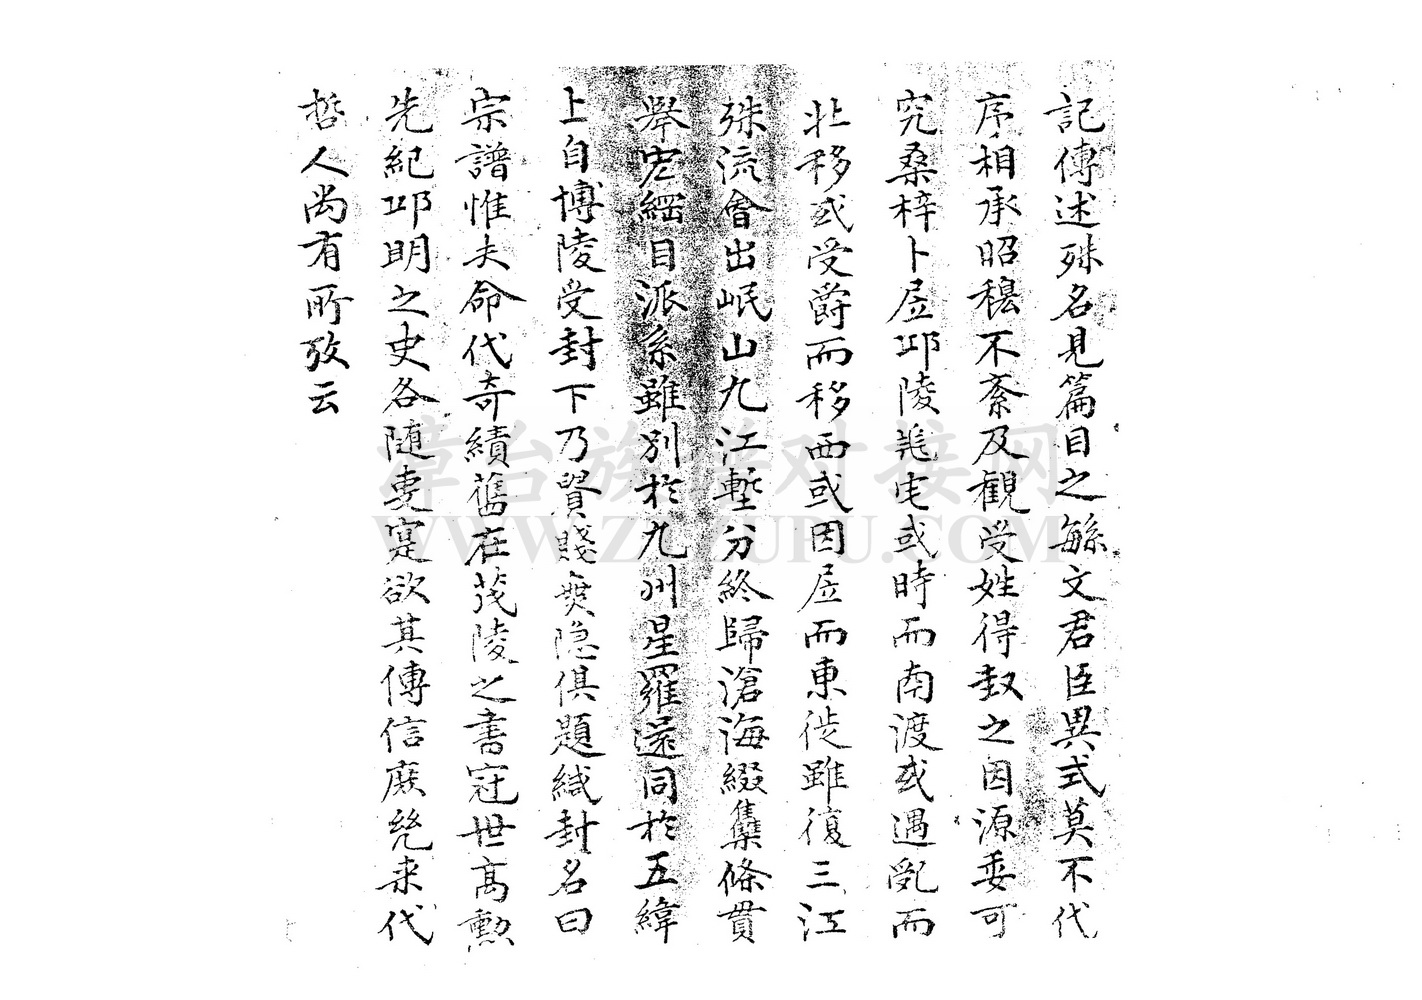 記傳述殊名見篇目之緐文君臣異式莫不代
序相承昭穆不紊及觀受姓得封之因源委可
究桑梓卜居邱陵兆宅或時而南渡或遇亂而
北移或受爵而移西或因居而東徙雖復三江
殊流會出岷山九江塹分終歸滄海綴集條貫
舉宏綱目派系雖別於九州星羅還同於五緯
上自博陵受封下乃賢賤賁隐俱題緘封名曰
宗譜惟夫命代奇績舊在茂陵之書冠世高勲
先紀邱明之史各随更寔欲其傳信庶幾来代
哲人尚有所攷云
韋台族谱对接网